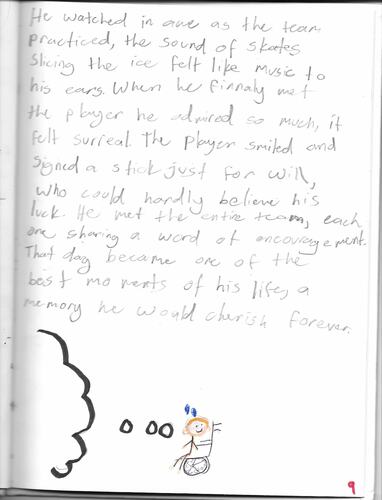 He watched in awe as the team
practiced, the sound of skates
slicing the ice felt like music to
his ears. When he finnaly met
the player he admired so much, it
felt surreal. The Player smiled and
signed a stick just for Will,
who could hardly believe his
luck. He met the entire team, each
one sharing a word of encouragement.
That day became one of the
best moments of his life, a
memory he would cherish forever.
9